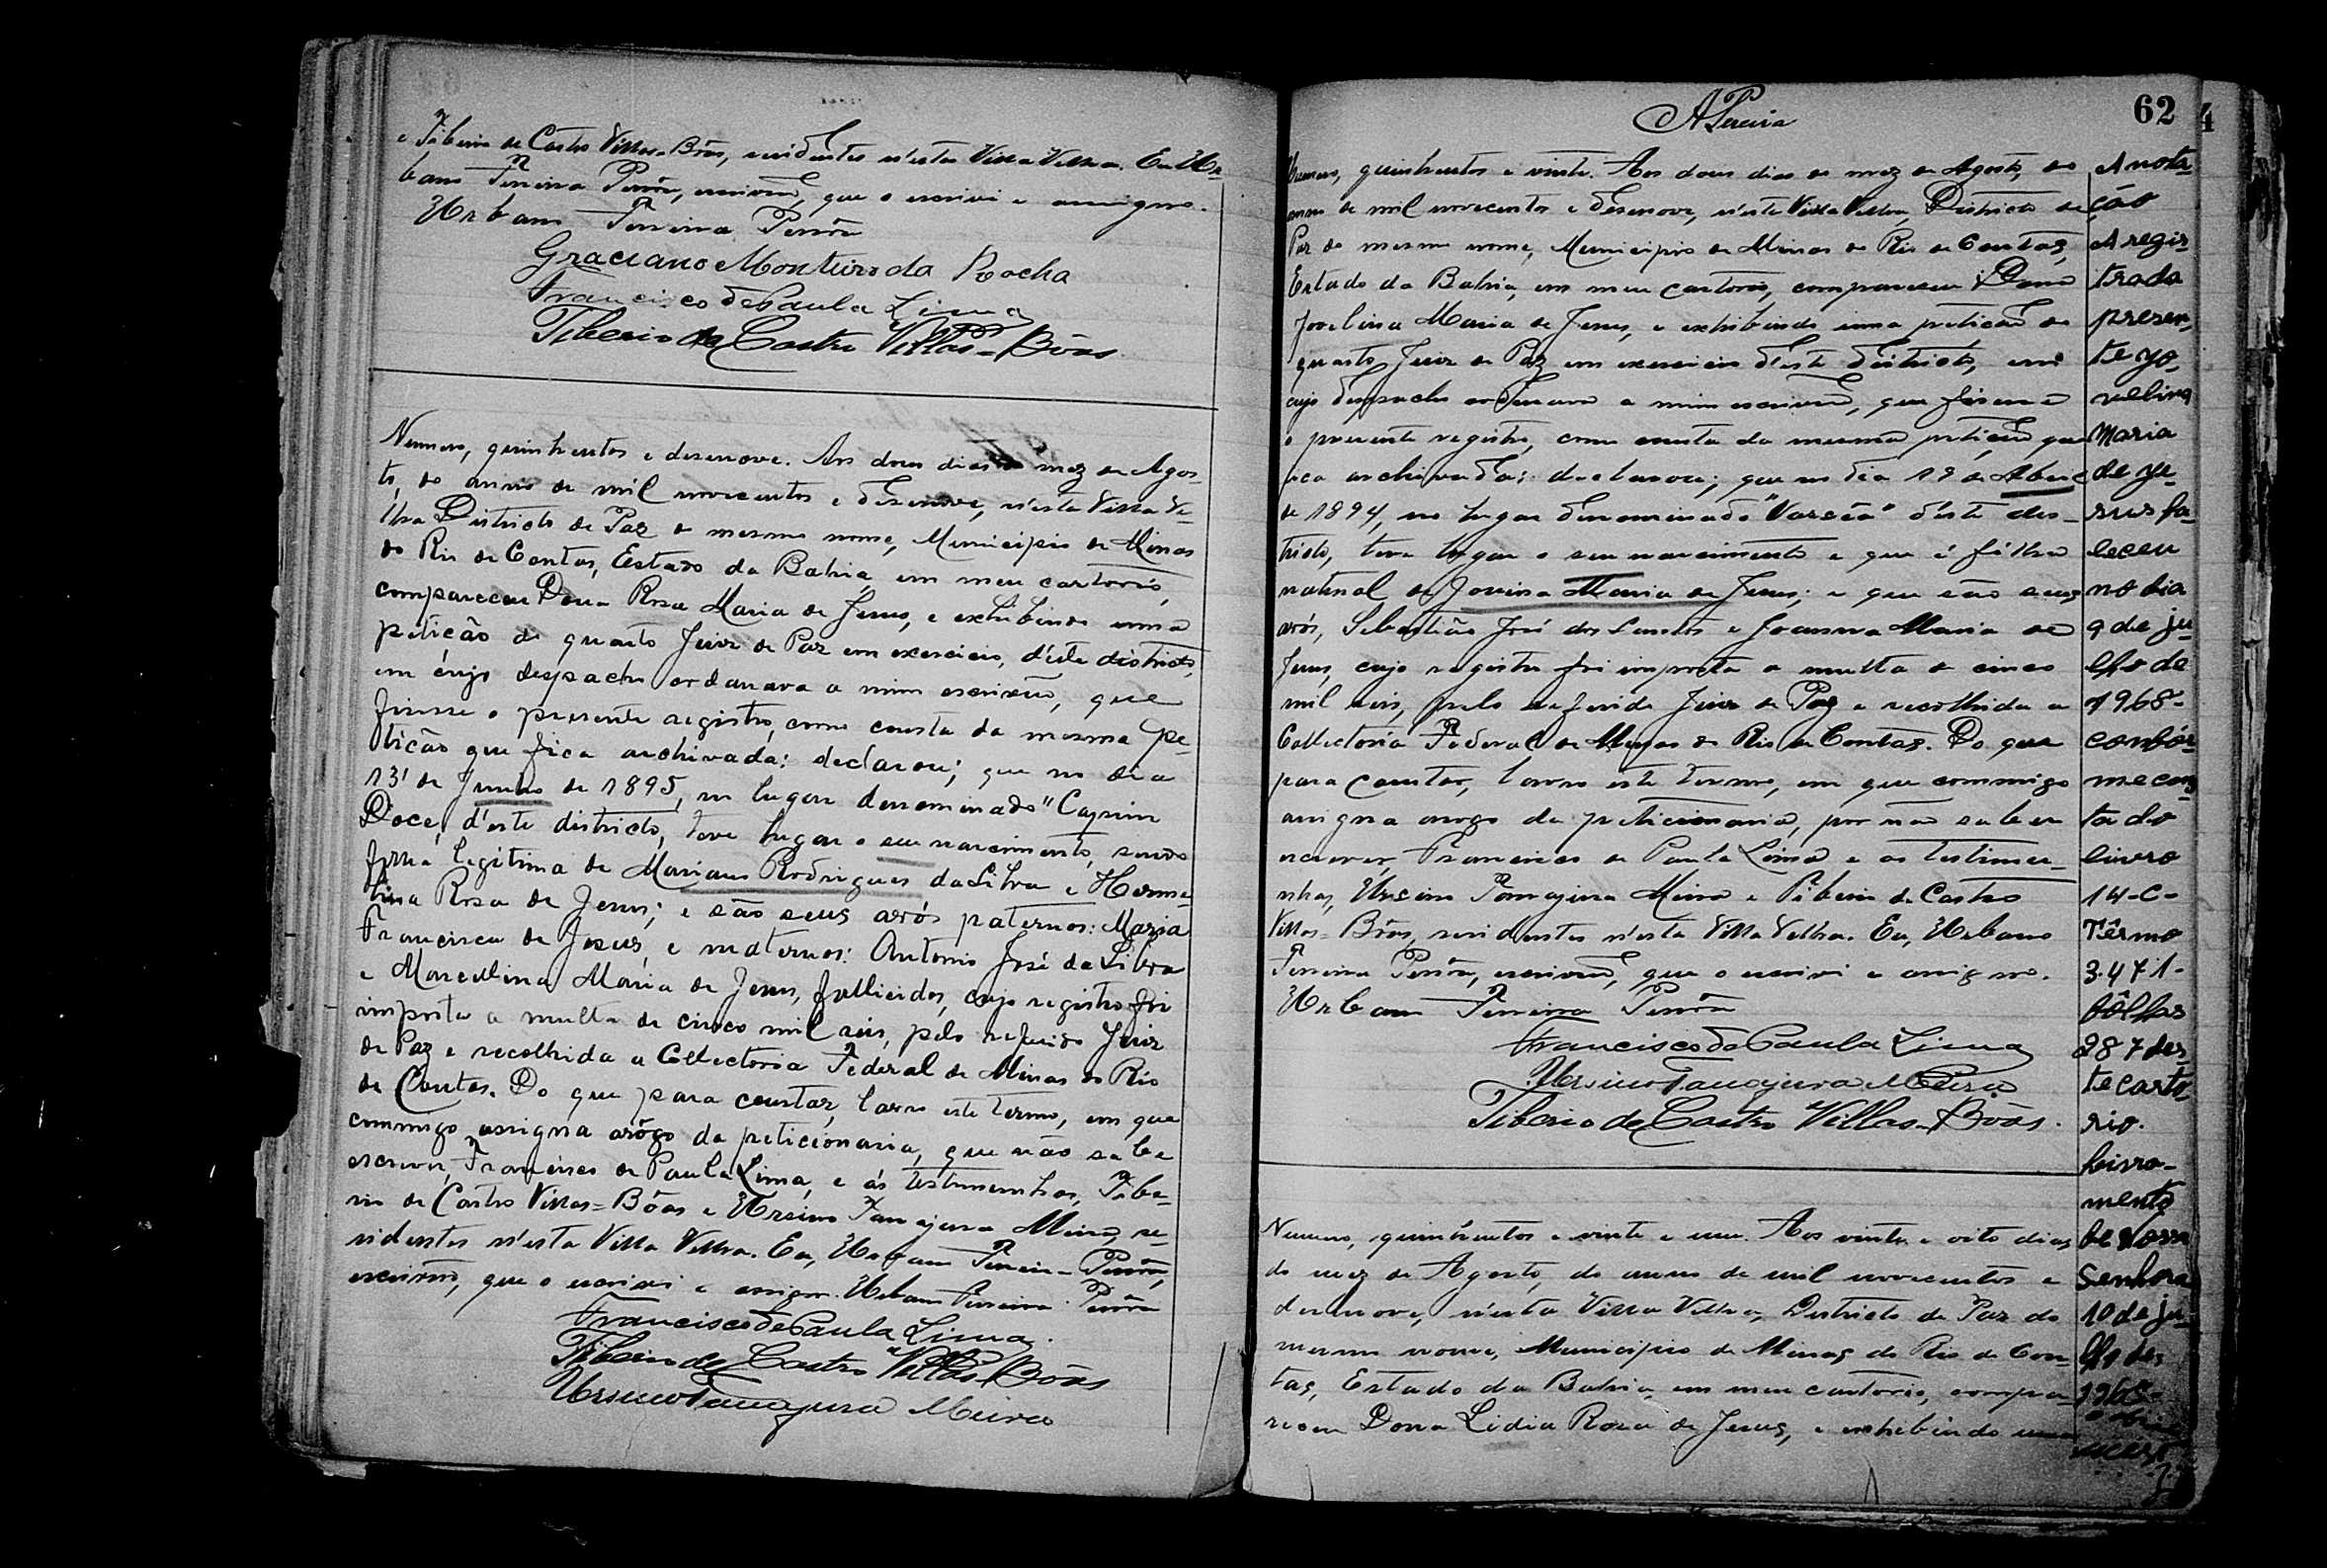 e Tiberio de Castro Villas-Bôas, residentes n'esta Villa Velha. Eu, Ur-
bano Ferreira Pessôa, escrivão, que o escrivi e assigno.
Urbano Ferreira Pessôa
Graciano Monteiro da Rocha
Francisco de Paula Lima
Tiberio de Castro Villas-Bôas
Numero, quinhentos e desenove. Aos dous dias do mez de Agos-
to, do anno de mil novecentos e desenove, n'esta Villa Ve-
lha Districto de Paz do mesmo nome, Municipio de Minas
do Rio de Contas, Estado da Bahia, em meu cartorio,
compareceu Dona Rosa Maria de Jesus, e exhibindo uma
petição do quarto Juiz de Paz em exercicio, d'este districto,
em cujo despacho ordenava a mim escrivão, que
fizesse o presente registro, como consta da mesma pe-
tição que fica archivada: declarou; que no dia
13 de Junho de 1895, no lugar denominado "Capim
Doce, d'este districto, teve lugar o seu nascimento, sendo
filha legitima de Mariano Rodrigues da Silva e Herme-
lina Rosa de Jesus; e são seus avós paternos: Maria
Francisca de Jesus, e maternos: Antonio José da Silva
e Marcolina Maria de Jesus, fallicidos, cujo registro foi
imposta a multa de cinco mil reis, pelo referido Juiz
de Paz e recolhida a Collectoria Federal de Minas do Rio
de Contas. Do que para constar, lavro este termo, em que
commigo assigna arôgo da peticionaria, que não sabe
escrever, Francisco de Paula Lima, e ás testemunhas, Tibe-
rio de Castro Villas-Bôas e Ursino Tanajura Meira, re-
sidentes n'esta Villa Velha. Eu, Urbano Ferreira Pessôa,
escrivão, que o escrivi e assigno. Urbano Ferreira Pessôa
Francisco de Paula Lima.
Tiberio de Castro Villas-Bôas
Ursino Tanajura Meira
APereira
62
Numero, quinhentos e vinte. Aos dous dias do mez de Agosto, do
anno de mil novecentos e desenove, n'esta Villa Velha, Districto de
Paz do mesmo nome, Municipio de Minas do Rio de Contas,
Estado da Bahia, em meu cartorio, compareceu Dona
Jovelina Maria de Jesus, e exhibindo uma petição do
quarto Juiz de Paz em exercicio d'este districto, em
cujo despacho ordenava a mim escrivão, que fizesse
o presente registro, como consta da mesma petição, que
fica archivada: declarou; que no dia 19 de Abril
de 1894, no lugar denominado "Varsêa" d'este dis-
tricto, teve lugar o seu nascimento e que é filha
natural de Jovina Maria de Jesus; e que são seus
avós, Sebastião José dos Santos e Joanna Maria de
Jesus, cujo registro foi imposta a multa de cinco
mil reis, pelo referido Juiz de Paz e recolhida a
Collectoria Federal de Minas do Rio de Contas. Do que
para constar, lavro este termo, em que commigo
assigna arogo da peticionaria, por não saber
escrever, Francisco de Paula Lima e as testimu-
nhas, Ursino Tanajura Meira e Tiberio de Castro
Villas-Bôas, residentes n'esta Villa Velha. Eu, Urbano
Ferreira Pessôa, escrivão, que o escrivi e assigno.
Urbano Ferreira Pessôa
Francisco de Paula Lima
Ursino Tanajura Meira
Tiberio de Castro Villas-Bôas.
Numero, quinhentos e vinte e um. Aos vinte e oito dias
do mez de Agosto, do anno de mil novecentos e
desenove, n'esta Villa Velha, Districto de Paz do
mesmo nome, Municipio de Minas do Rio de Con-
tas, Estado da Bahia, em meu cartorio, compa-
receu Dona Lidia Rosa de Jesus, e exhebindo uma
Anota-
ção
A regis-
trada
presen-
te yo-
velina
Maria
de ye-
sus fa-
leceu
no dia
9 de ju-
lho de
1968-
confor-
me cons
ta do
livro
14-C-
Têrmo
3.471-
fôlhas
287 des
te carto
rio.
Livra-
mento
de Nossa
Senhora
10 de ju-
lho de
1968-